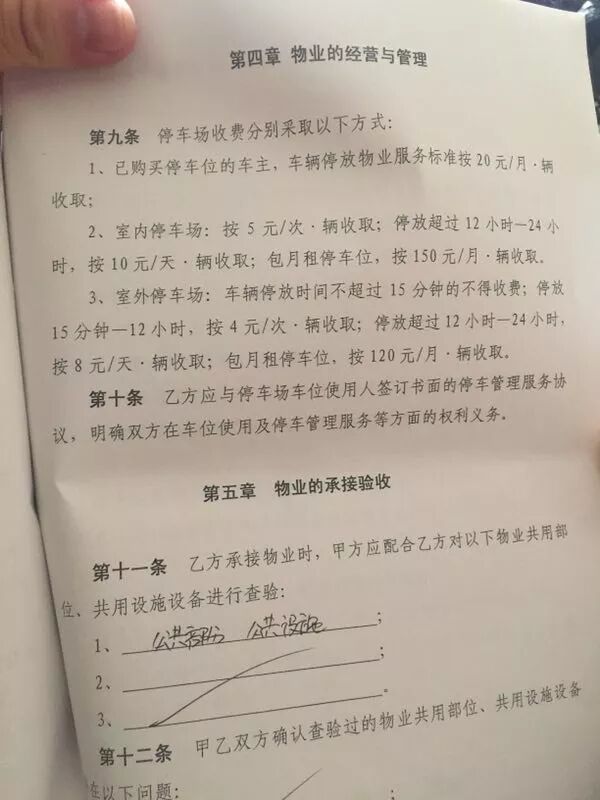 第四章 物业的经营与管理
第九条 停车场收费分别采取以下方式：
1、已购买停车位的车主，车辆停放物业服务标准按20元/月·辆
收取；
2、室内停车场：按5元/次·辆收取；停放超过12小时—24小
时，按10元/天·辆收取；包月租停车位，按150元/月·辆收取。
3、室外停车场：车辆停放时间不超过15分钟的不得收费；停放
15分钟—12小时，按4元/次·辆收取；停放超过12小时—24小时，
按8元/天·辆收取；包月租停车位，按120元/月·辆收取。
第十条 乙方应与停车场车位使用人签订书面的停车管理服务协
议，明确双方在车位使用及停车管理服务等方面的权利义务。
第五章 物业的承接验收
第十一条 乙方承接物业时，甲方应配合乙方对以下物业共用部
位、共用设施设备进行查验：
1、公共部份 公共设施；
2、；
3、。
第十二条 甲乙双方确认查验过的物业共用部位、共用设施设备
在以下问题：